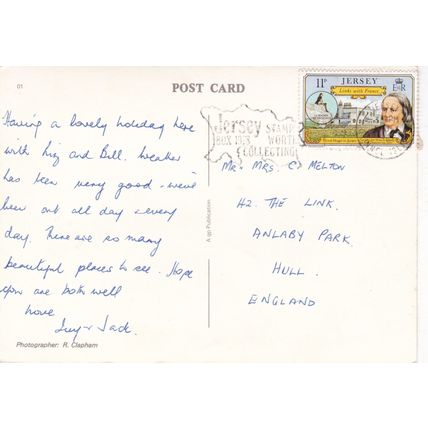 01
POST CARD
11P
JERSEY
Links with France
E R
Jersey STAMPS
WORTH
COLLECTING
Having a lovely holiday here
with Liz and Bill. Weather
has been very good - we've
been out all day every
day. There are so many
beautiful places to see. Hope
you are both well
Love
Jack.
Photographer: R. Clapham
A qp Publication
Mr. Mrs. C. MELTON
42. THE LINK.
ANLABY PARK.
HULL.
ENGLAND